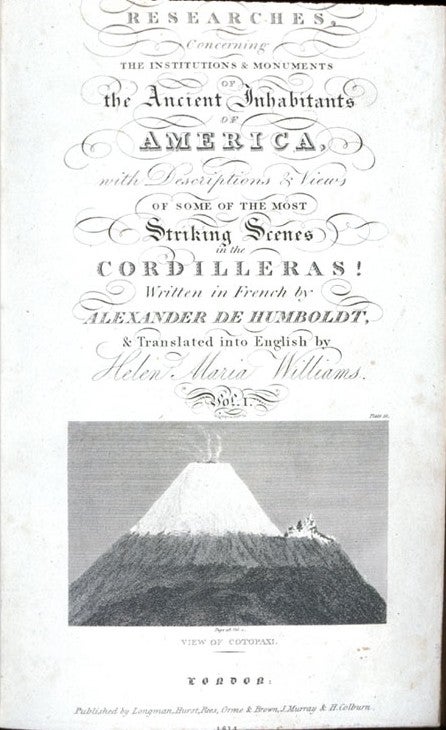 RESEARCHES,
Concerning
THE INSTITUTIONS & MONUMENTS
OF
the Ancient Inhabitants
OF
AMERICA,
with Descriptions & Views
OF SOME OF THE MOST
Striking Scenes
in the
CORDILLERAS!
Written in French by
ALEXANDER DE HUMBOLDT,
& Translated into English by
Helen Maria Williams.
Vol. I.
VIEW OF COTOPAXI.
LONDON:
Published by Longman, Hurst, Rees, Orme & Brown, J. Murray & H. Colburn.
1814